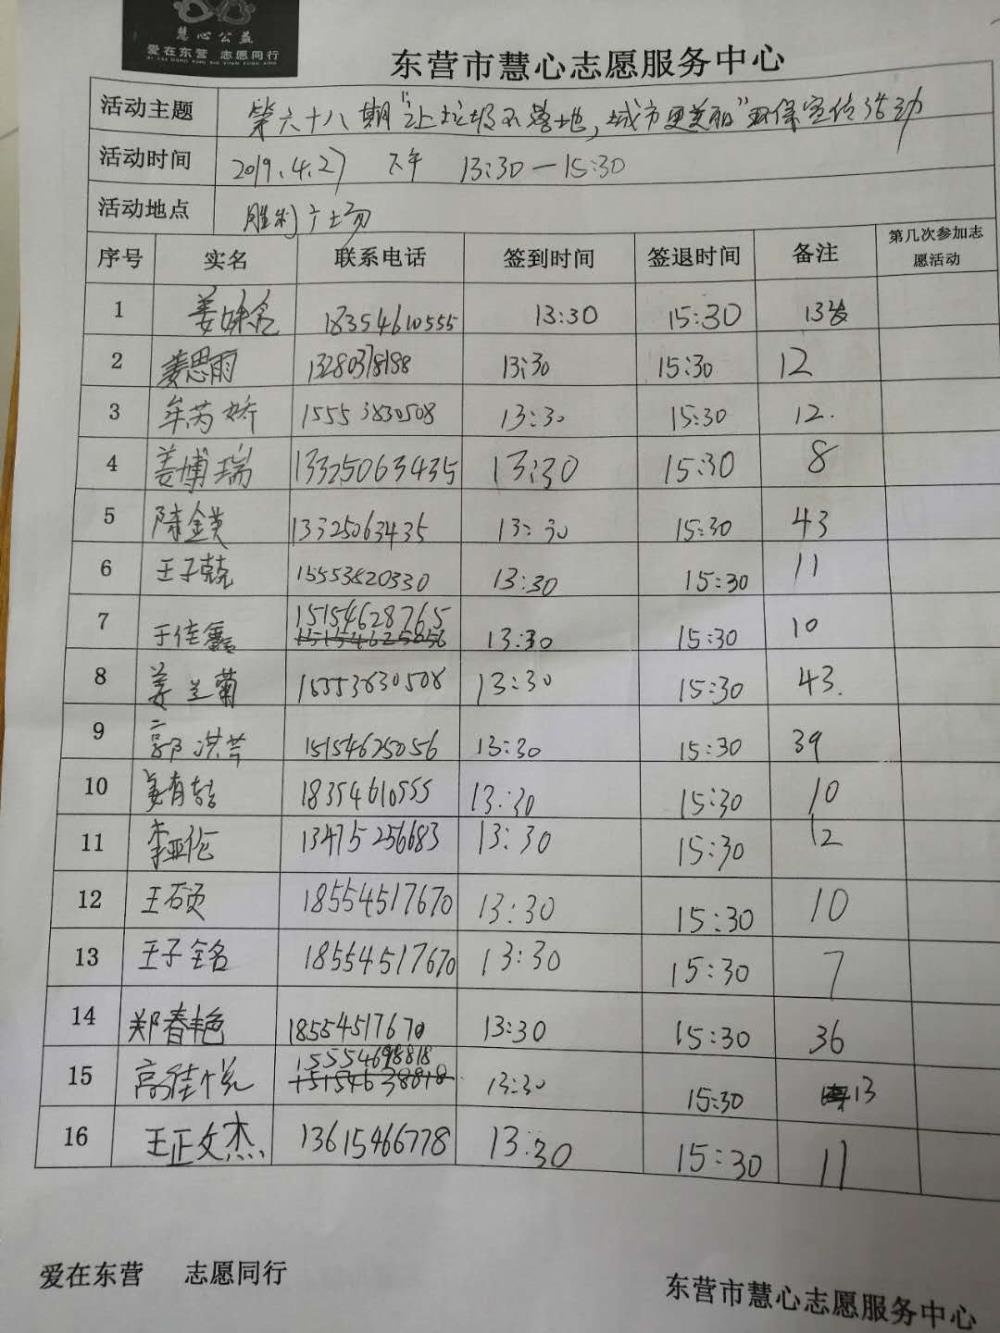 慧心公益
爱在东营 志愿同行
东营市慧心志愿服务中心
活动主题 第六十八期"让垃圾不落地,城市更美丽"环保宣传活动
活动时间 2019.4.27 下午 13:30—15:30
活动地点 胜利广场
序号 实名 联系电话 签到时间 签退时间 备注 第几次参加志愿活动
1 姜 18354610555 13:30 15:30 13岁
2 姜思雨 13280378198 13:30 15:30 12
3 牟芮娇 15553830508 13:30 15:30 12.
4 姜博瑞 13325063435 13:30 15:30 8
5 陈金英 13325063435 13:30 15:30 43
6 王子兢 15553820330 13:30 15:30 11
7 于佳鑫 15154628765 13:30 15:30 10
8 姜兰菊 15553830508 13:30 15:30 43.
9 郭洪芹 15154625056 13:30 15:30 39
10 姜有 18354610555 13:30 15:30 10
11 李亚伦 13475256683 13:30 15:30 12
12 王硕 18554517670 13:30 15:30 10
13 王子铭 18554517670 13:30 15:30 7
14 郑春艳 18554517670 13:30 15:30 36
15 高佳悦 15554698818 13:30 15:30 13
16 王正文杰 13615466778 13:30 15:30 11
爱在东营 志愿同行
东营市慧心志愿服务中心